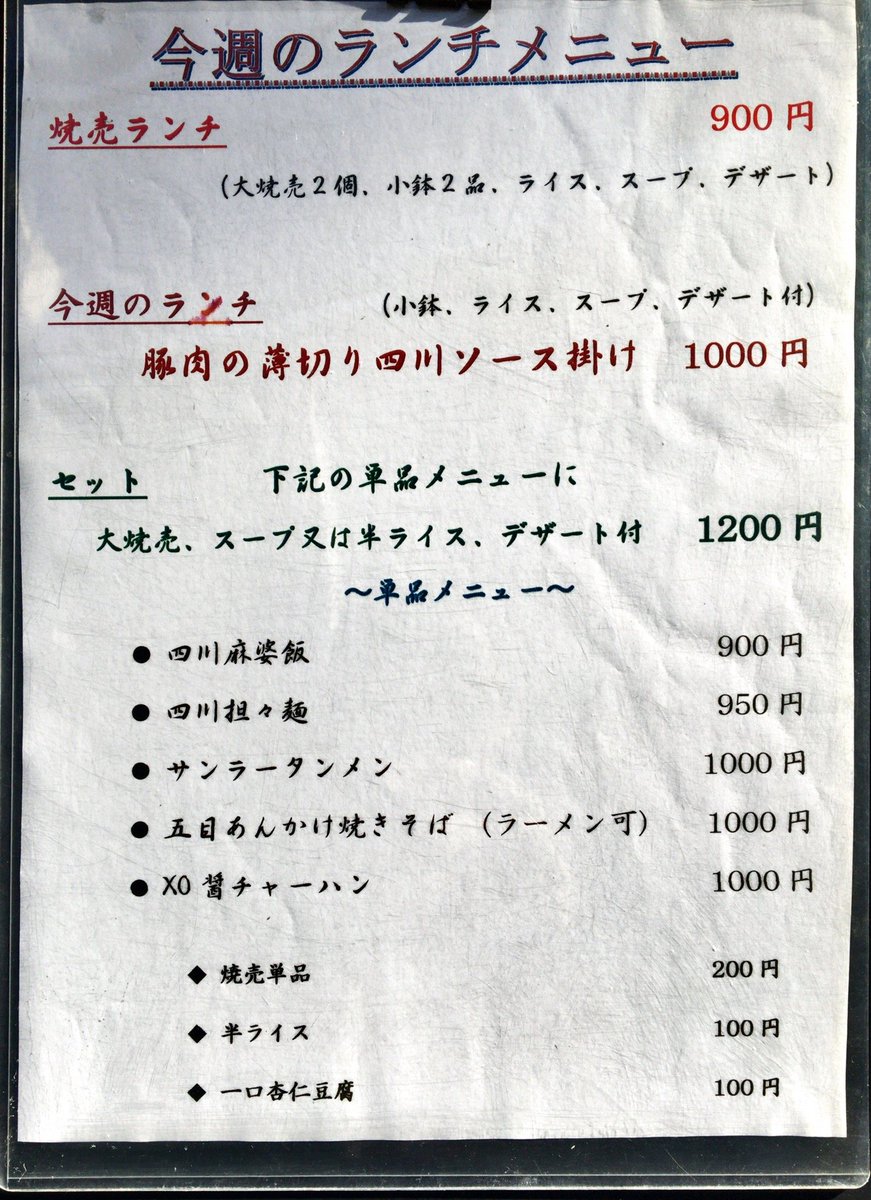 今週のランチメニュー
焼売ランチ 900円
(大焼売2個、小鉢2品、ライス、スープ、デザート)
今週のランチ (小鉢、ライス、スープ、デザート付)
豚肉の薄切り四川ソース掛け 1000円
セット 下記の単品メニューに
大焼売、スープ又は半ライス、デザート付 1200円
～単品メニュー～
● 四川麻婆飯 900円
● 四川担々麺 950円
● サンラータンメン 1000円
● 五目あんかけ焼きそば (ラーメン可) 1000円
● XO醤チャーハン 1000円
◆ 焼売単品 200円
◆ 半ライス 100円
◆ 一口杏仁豆腐 100円